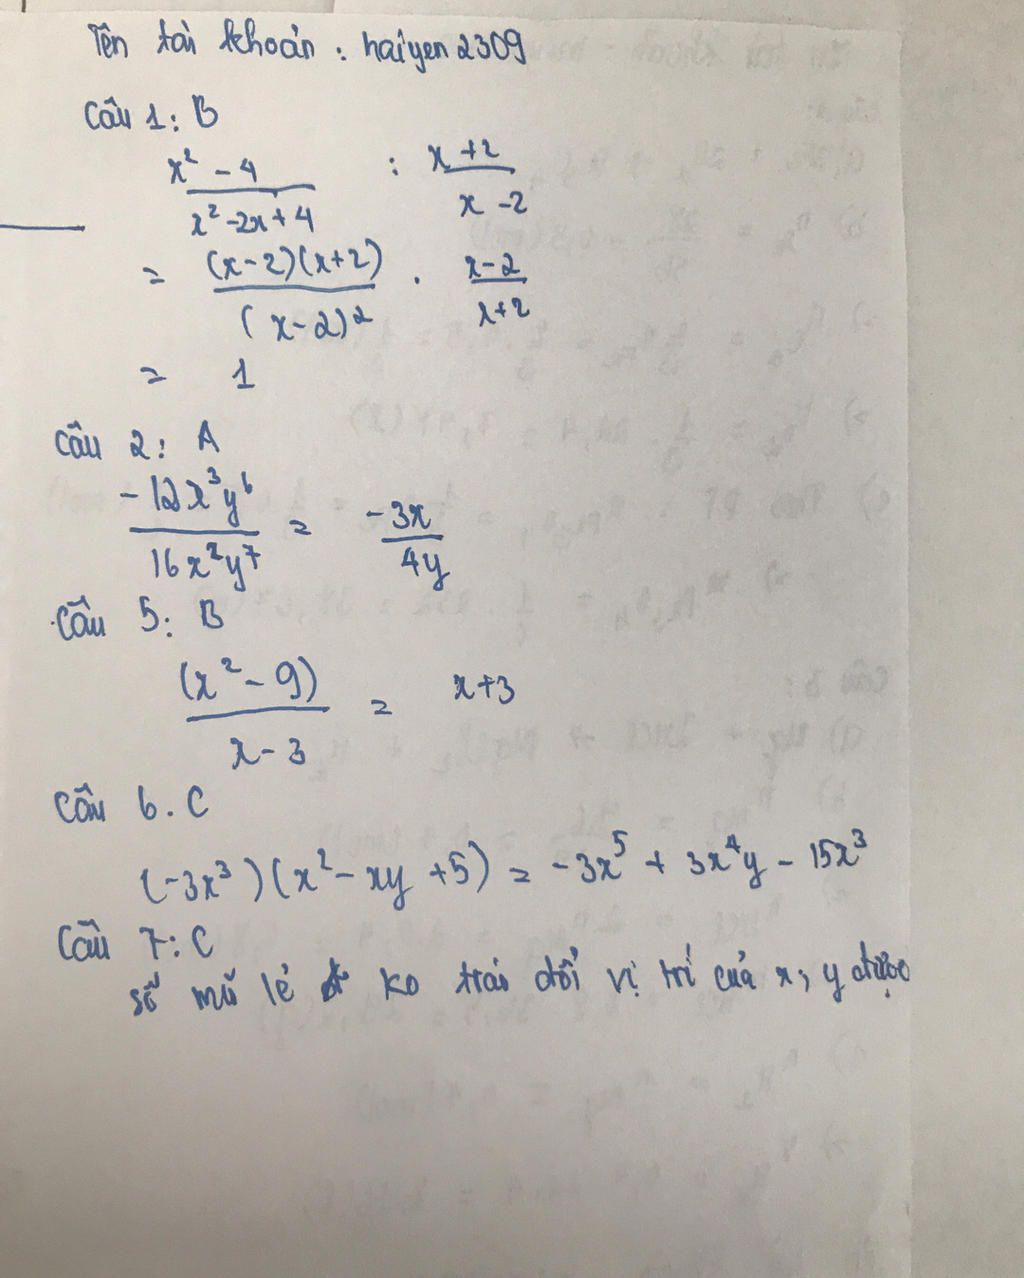 Tên tài khoản : haiyen2309
Câu 1: B
x² - 4 / x² - 2x + 4 : x + 2 / x - 2
= (x-2)(x+2) / (x-2)² . x-2 / x+2
= 1
Câu 2: A
-12x³y⁶ / 16x²y⁷ = -3x / 4y
Câu 5: B
(x² - 9) / x - 3 = x+3
Câu 6. C
(-3x³)(x² - xy + 5) = -3x⁵ + 3x⁴y - 15x³
Câu 7: C
số mũ lẻ ko tráo đổi vị trí của x, y được